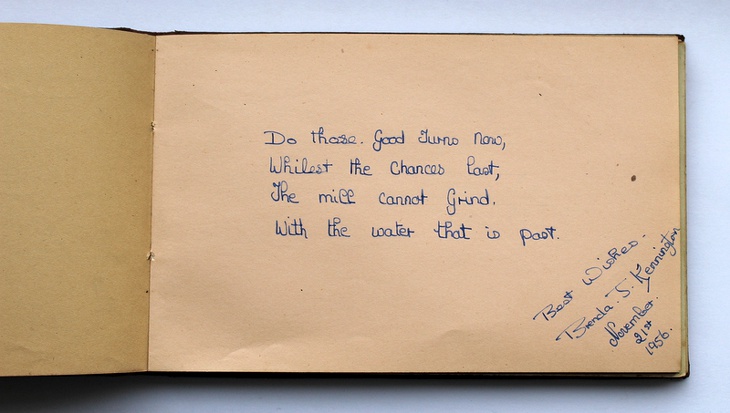 Do those. Good Turns Now,
Whilest the Chances last,
The mill cannot Grind.
With the water that is past.
Best Wishes -
Brenda. J. Kennington
November.
21st
1956.